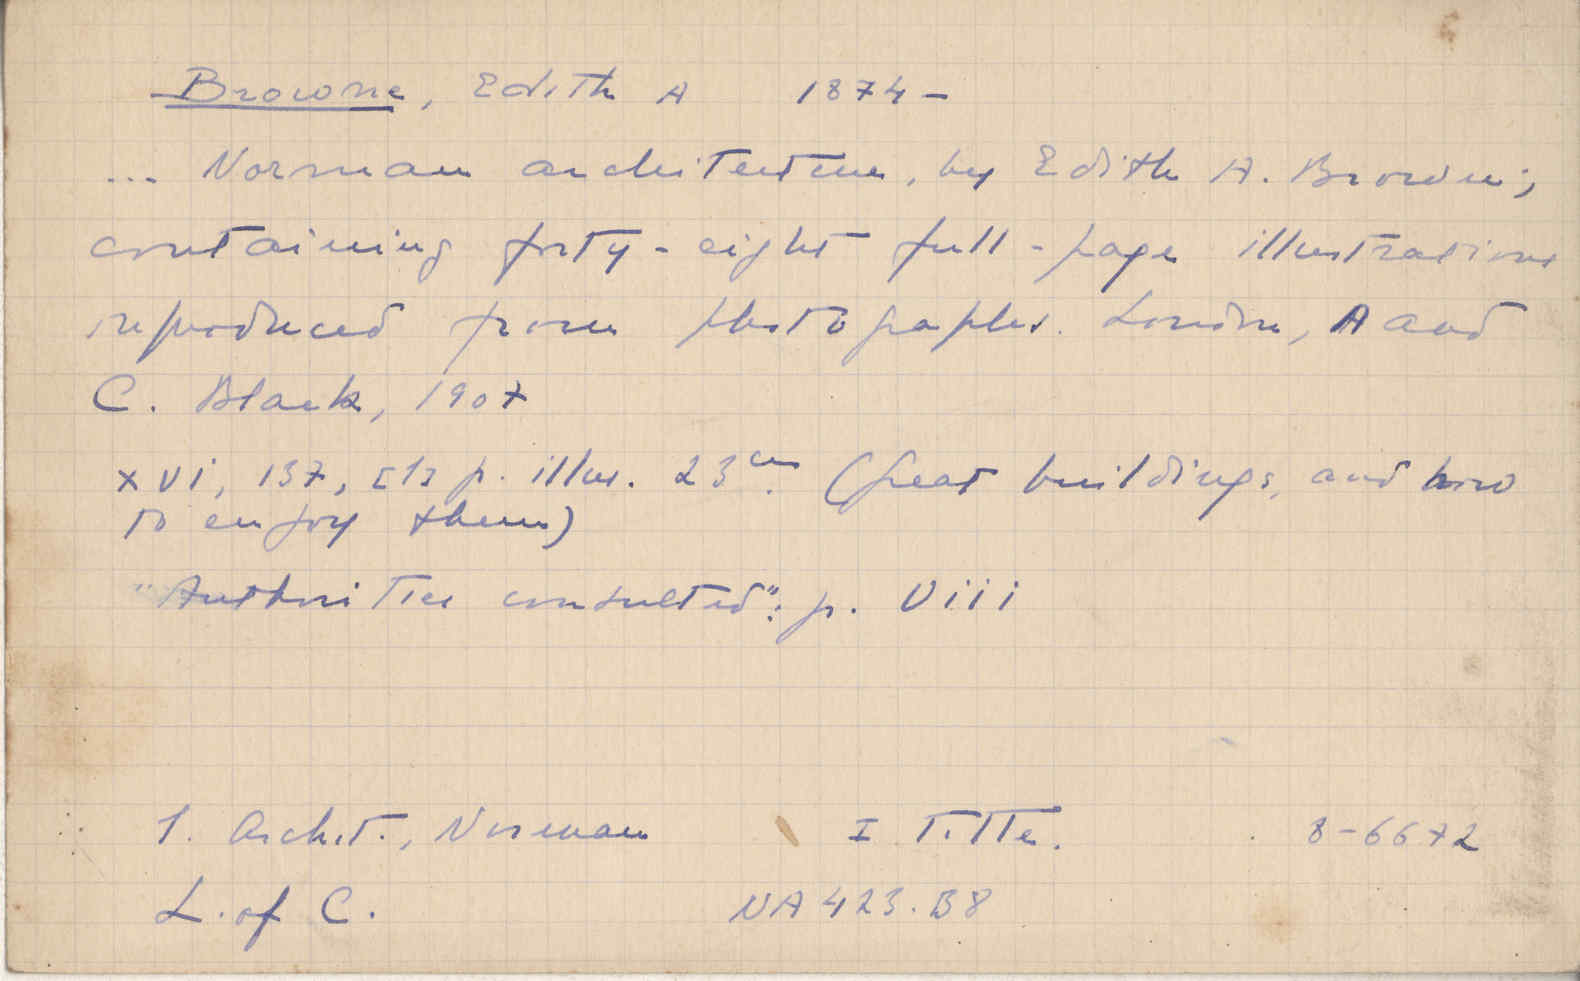 Browne, Edith A 1874-
... Norman architecture, by Edith A. Browne;
containing forty-eight full-page illustrations
reproduced from photographs. London, A and
C. Black, 1907
xvi, 137, [1] p. illus. 23cm. (Great buildings, and how
to enjoy them)
"Authorities consulted": p. viii
1. Archit., Norman I Title. 8-6672
L. of C. NA423.B8